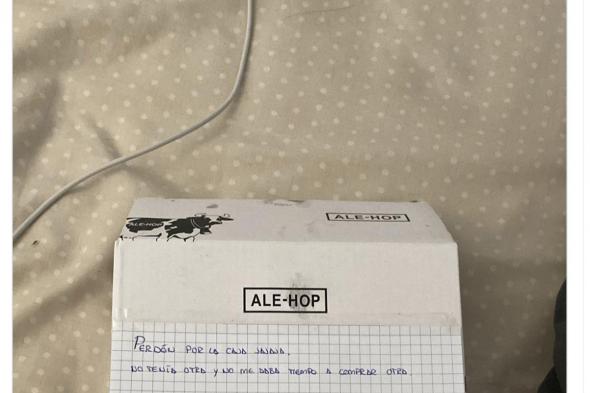 ALE-HOP
ALE-HOP
ALE-HOP
PERDÓN POR LA CAJA JAJAJA.
NO TENÍA OTRA Y NO ME DABA TIEMPO A COMPRAR OTRA.